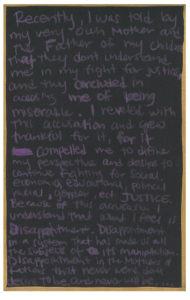 Recently, I was told by
my very own Mother and
the Father of my children
that they dont understand
me in my fight for justice
and they concluded in
accusing me of being
miserable. I reveled with
this accusation and grew
thankful for it, for it
Compelled me to define
my perspective and desire to
continue fighting for social,
economic, educational, political
racial, gender, ect JUSTICE.
Because of this adversity I
understand that what I feel is
Disappointment. Disappointment
in a system that has made us all
the subjects of its manipulation.
Disappointment in the Mothers &
fathers that never were, don't
to be, and never will be...